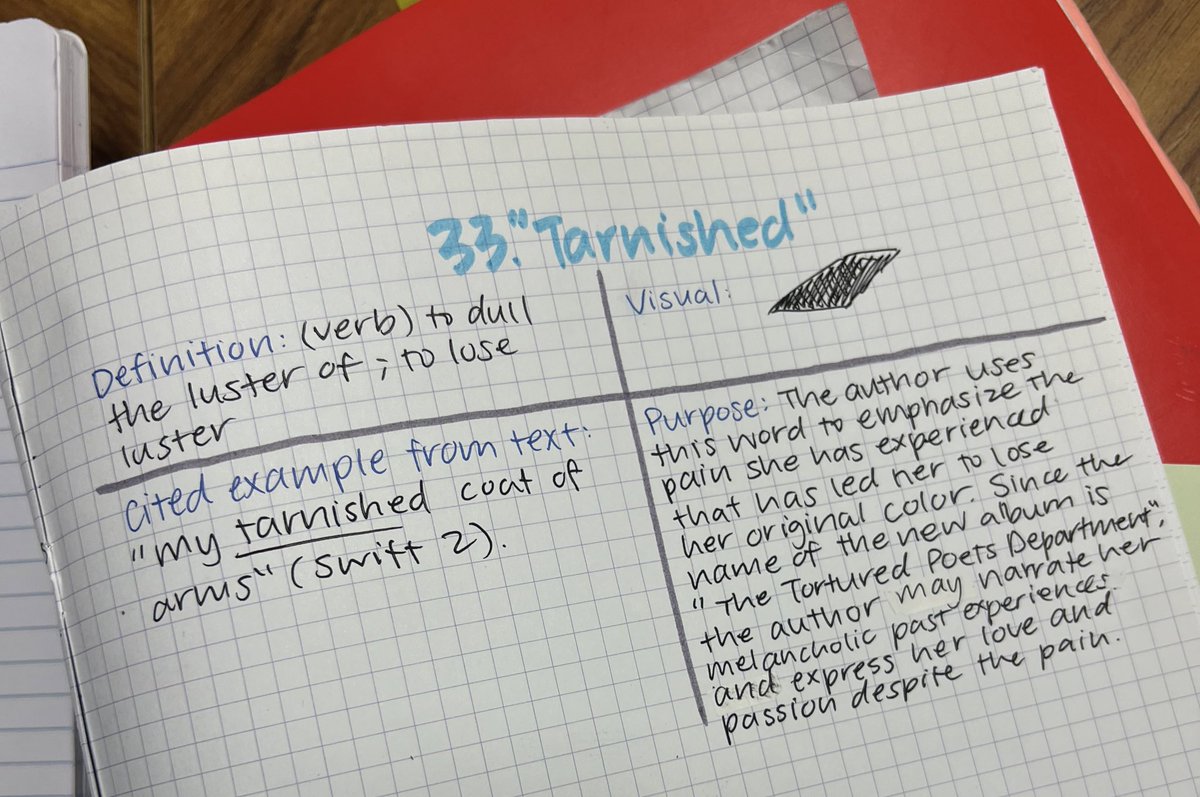 33. "Tarnished"
Definition: (verb) to dull
the luster of ; to lose
luster
Visual:
cited example from text:
"my tarnished coat of
arms" (swift 2).
Purpose: The author uses
this word to emphasize the
pain she has experienced
that has led her to lose
her original color. Since the
name of the new album is
"The Tortured Poets Department",
the author may narrate her
melancholic past experiences
and express her love and
passion despite the pain.